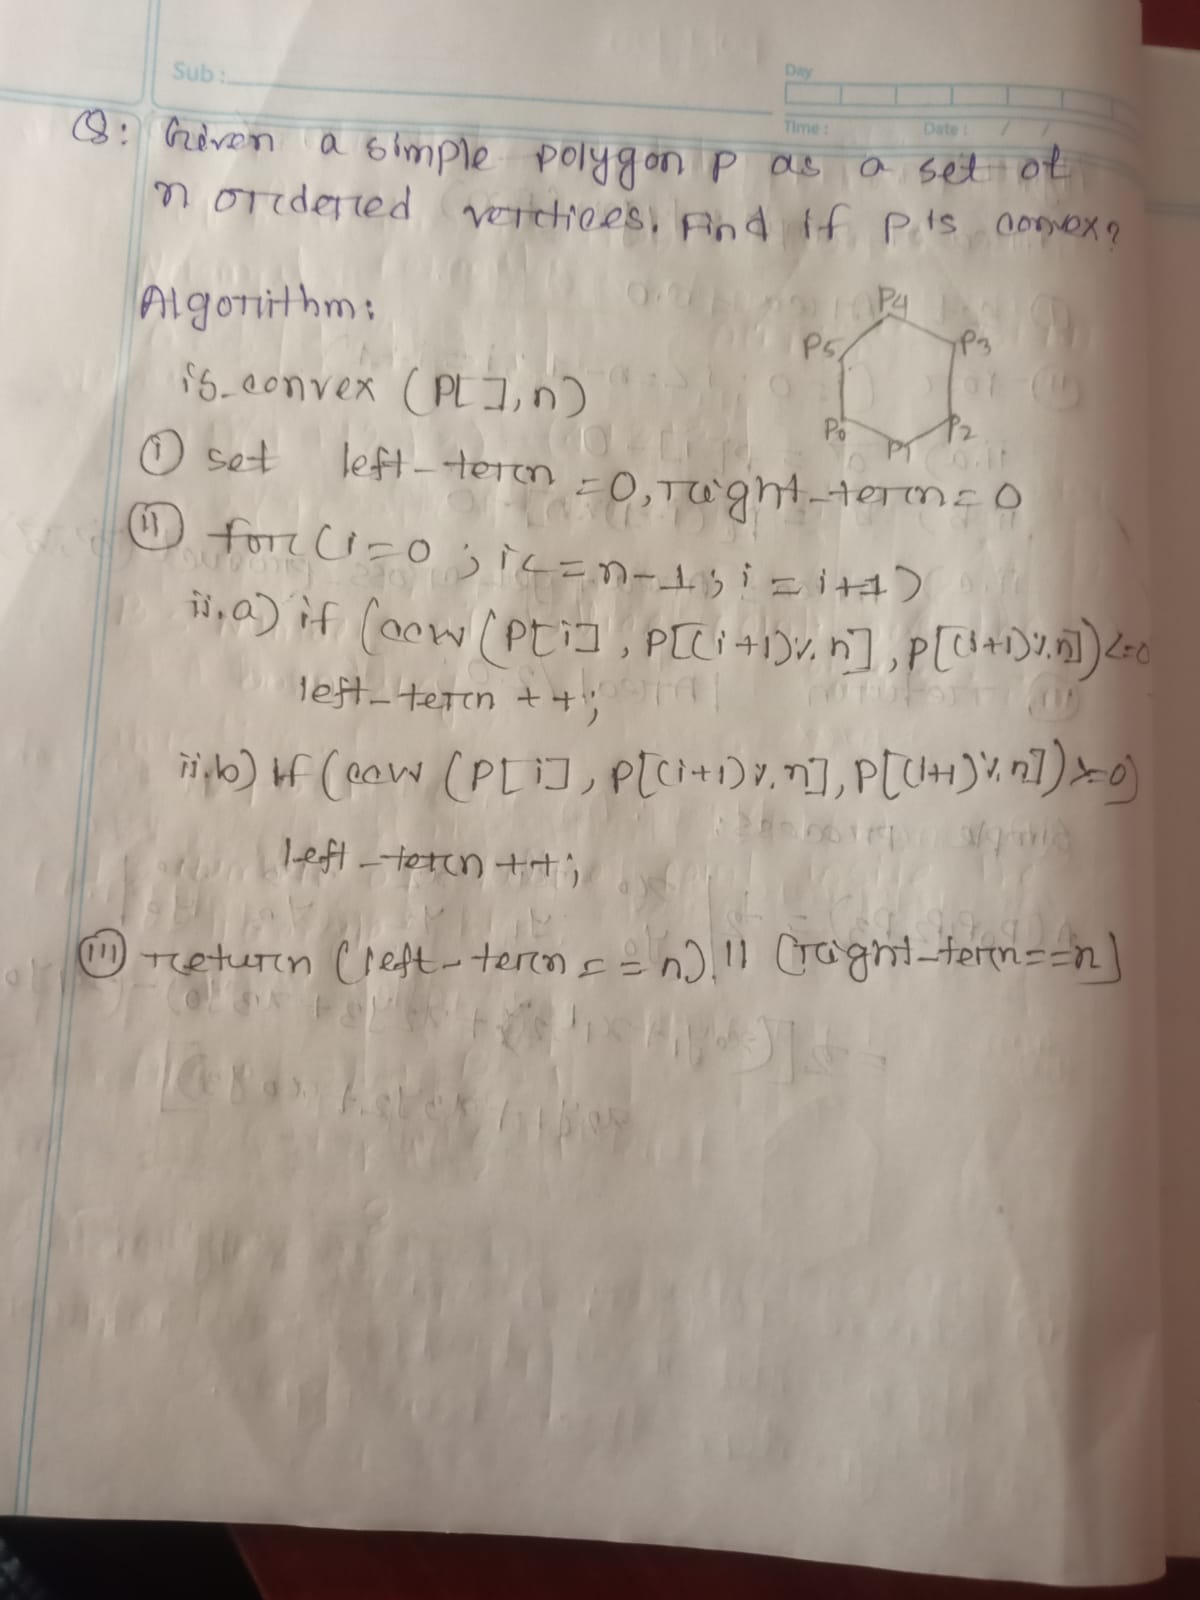 Sub :
Day
Time :
Date : / /
Q: Given a simple polygon p as a set of
n ordered vertices. Find if p is convex?
Algorithm:
P4
P5
P3
is-convex (P[ ], n)
P0
P2
P1
(i) set left-tern = 0, right-tern = 0
(ii) for (i=0 ; i<=n-1 ; i = i+1)
ii.a) if (ccw (P[i], P[(i+1)%n], P[(i+1)%n]) <=0
left-tern ++;
ii.b) if (ccw (P[i], P[(i+1)%n], P[(i+1)%n]) >=0)
left-tern ++;
(iii) return (left-tern == n) || (right-tern==n)